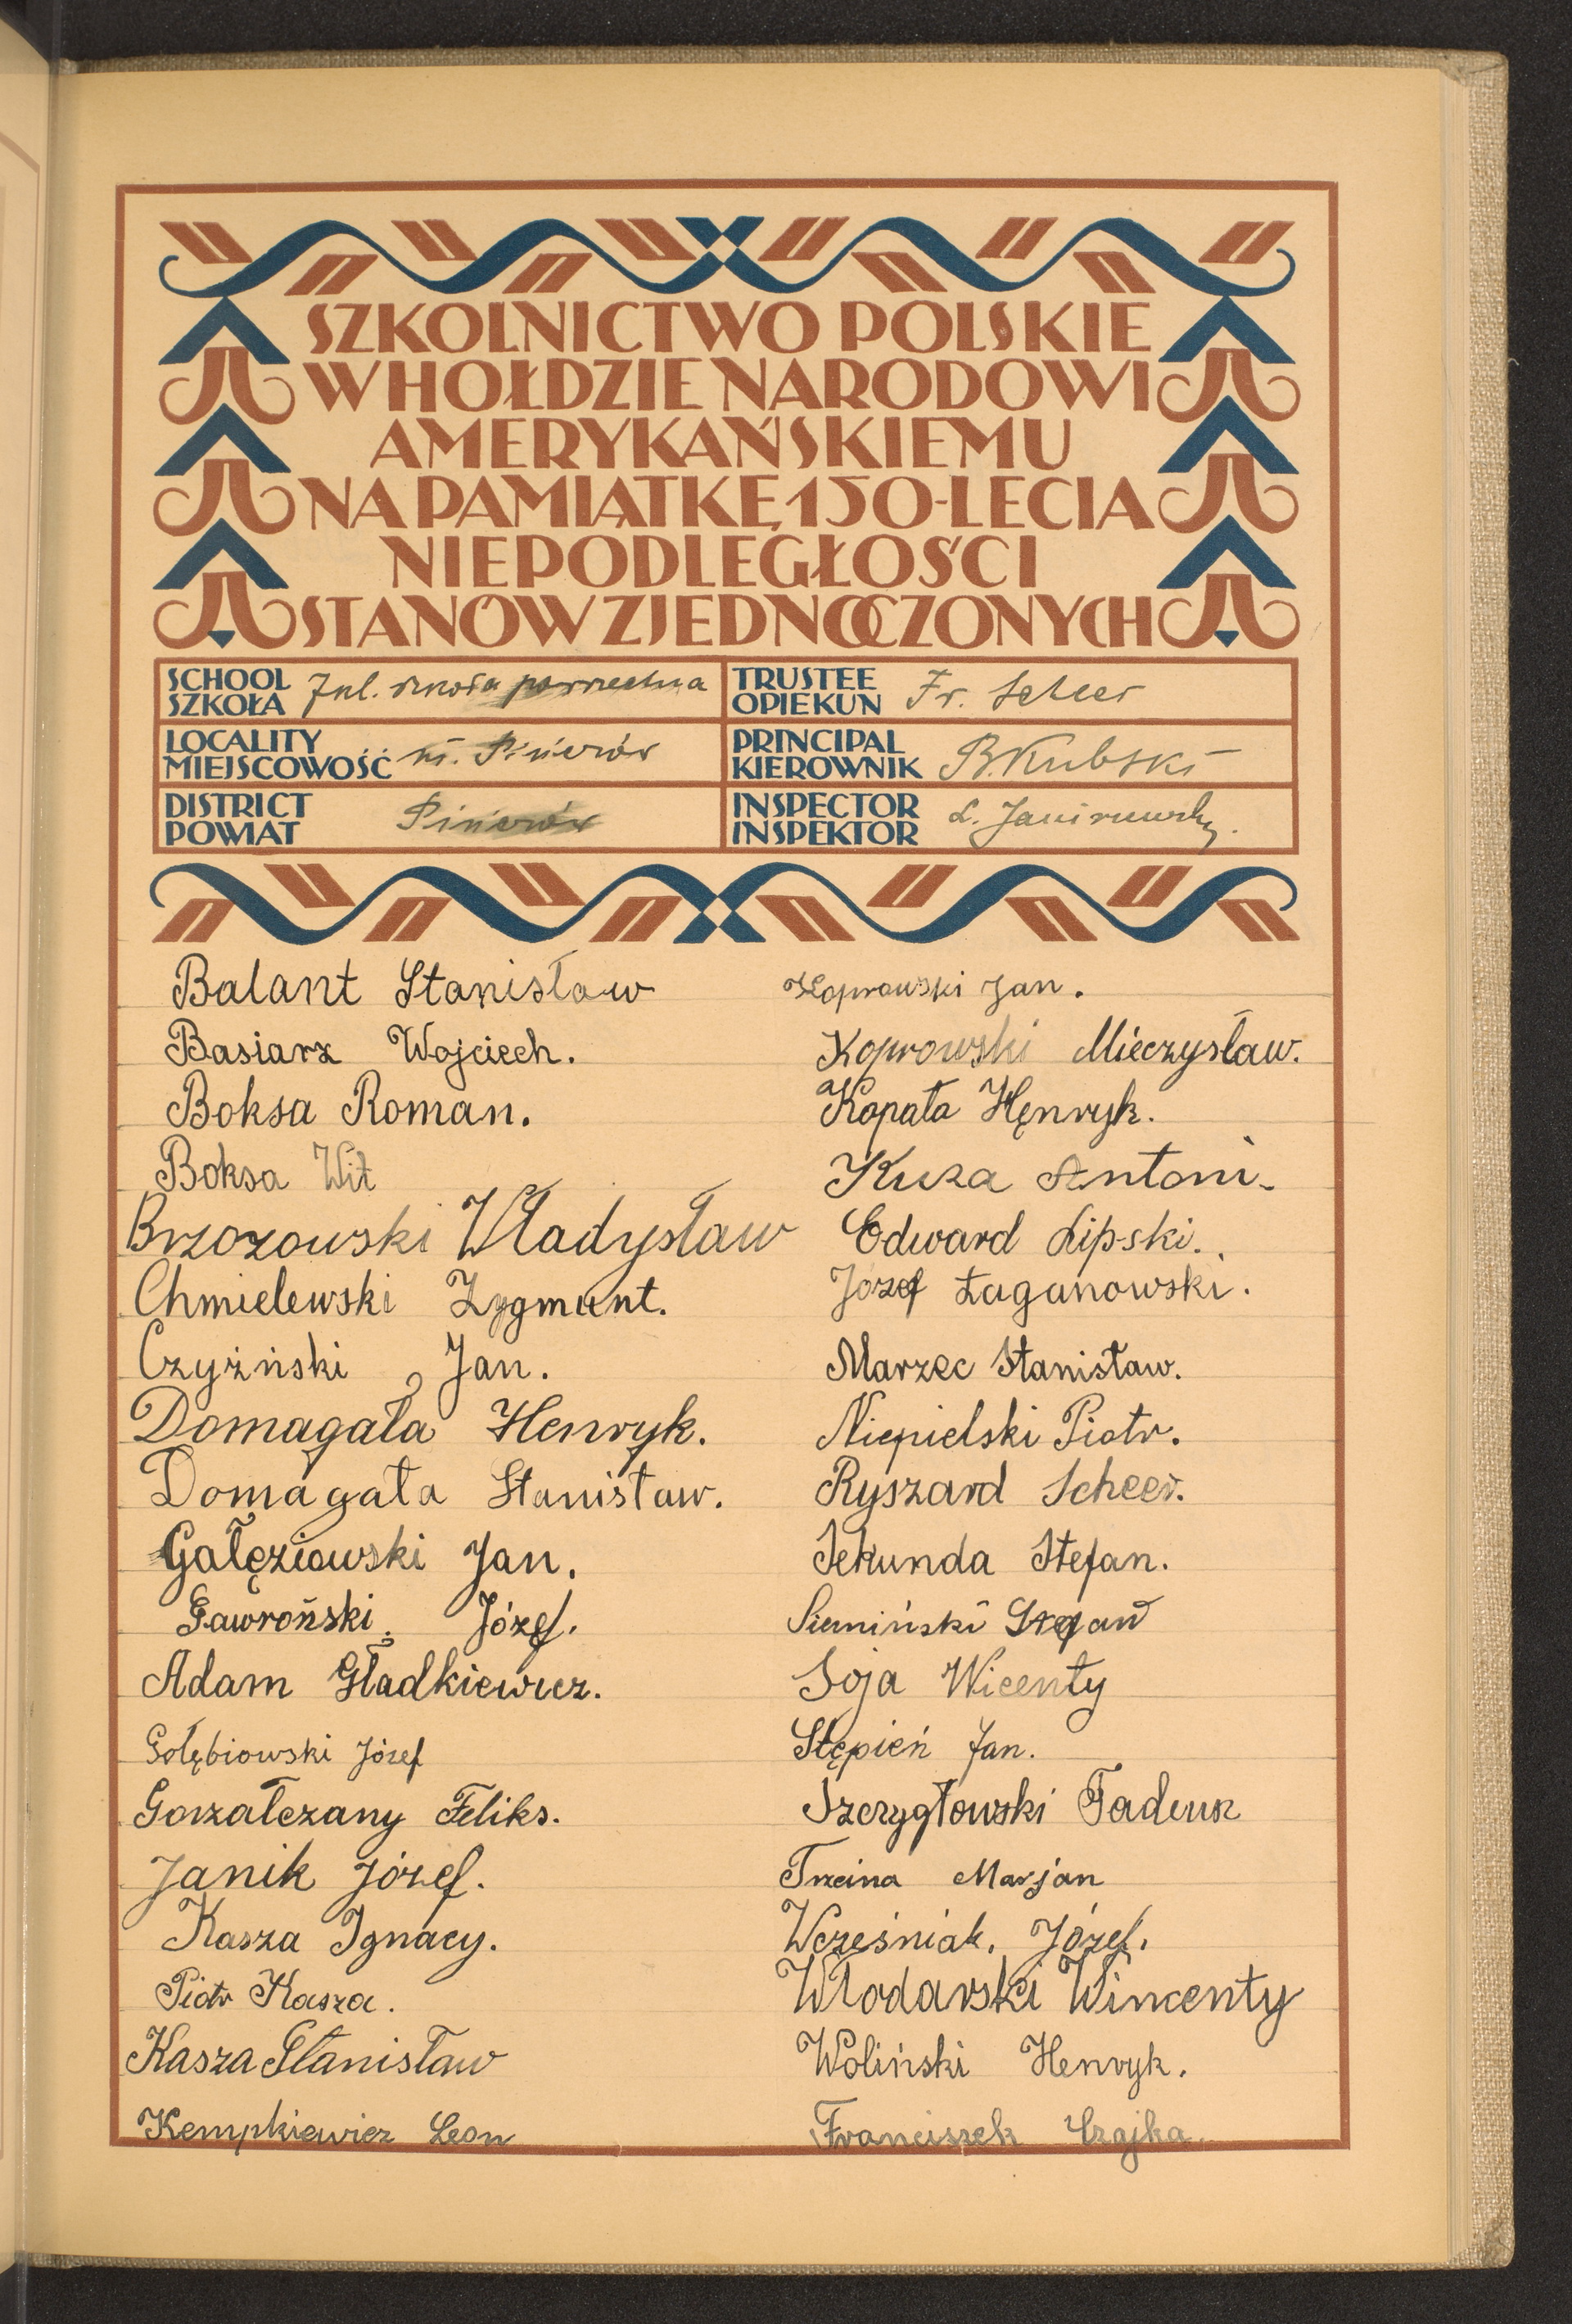 SZKOLNICTWO POLSKIE
W HOŁDZIE NARODOWI
AMERYKAŃSKIEMU
NA PAMIĄTKĘ 150-LECIA
NIEPODLEGŁOŚCI
STANÓW ZJEDNOCZONYCH
SCHOOL
SZKOŁA 7kl. szkoła powszechna
TRUSTEE
OPIEKUN Fr. Scheer
LOCALITY
MIEJSCOWOŚĆ m. Pińczów
PRINCIPAL
KIEROWNIK B. Kubski
DISTRICT
POWIAT Pińczów
INSPECTOR
INSPEKTOR L.
Balant Stanisław
Basiarz Wojciech.
Boksa Roman.
Boksa Wit
Brzozowski Władysław
Chmielewski Zygmunt.
Czyżński Jan.
Domagała Henryk.
Domagała Stanisław.
Gałęziowski Jan.
Gawroński Józef.
Adam Gładkiewicz.
Gołębiowski Józef
Gorzałczany Feliks.
Janik Józef.
Kasza Ignacy.
Piotr Kasza.
Kasza Stanisław
Kempkiewicz Leon
Koprowski Jan.
Koprowski Mieczysław.
Kopała Hęnryk.
Kuza Antoni.
Edward Lipski.
Józef Łaganowski.
Marzec Stanisław.
Niepielski Piotr.
Ryszard Scheer.
Sekunda Stefan.
Siemiński Stefan
Soja Wicenty
Stępień Jan.
Szczygłowski Tadeusz
Trzcina Marjan
Wcześniak. Józef.
Włodarski Wincenty
Woliński Henryk.
Franciszek Czajka.